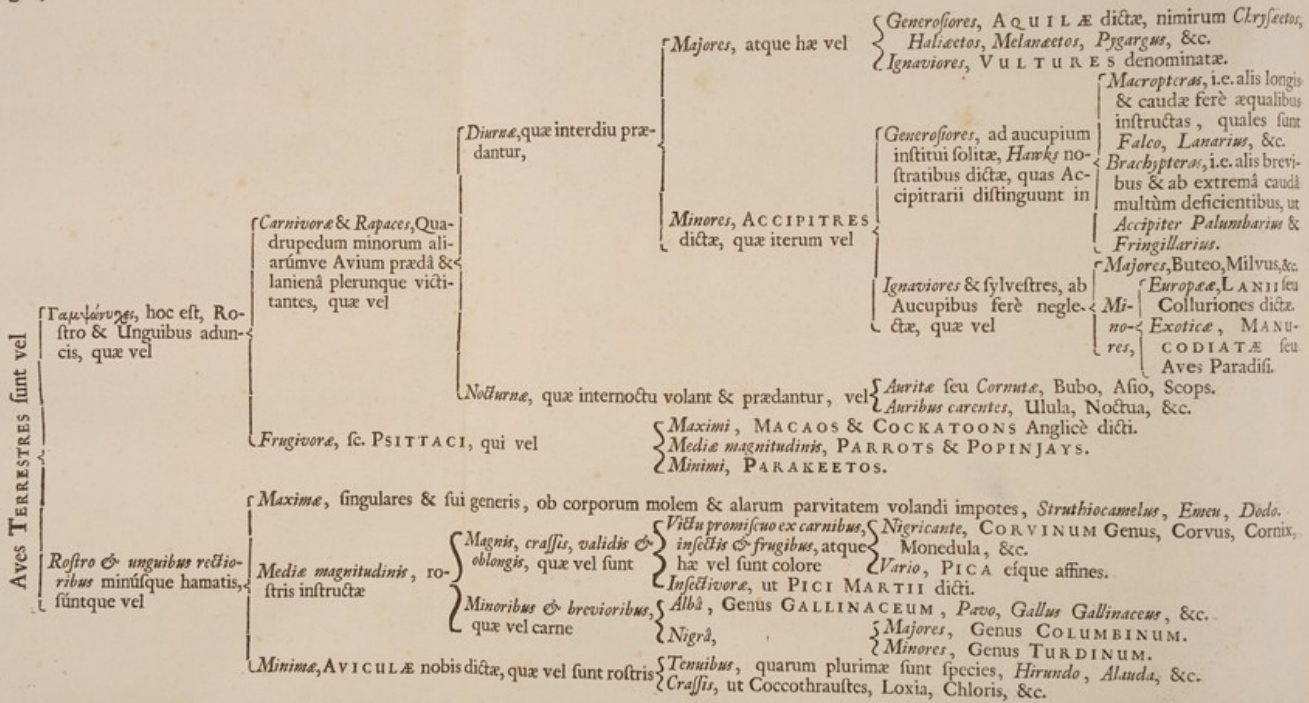 Aves TERRESTRES ſunt vel
Γαμψώνυχες, hoc eſt, Ro-
ſtro & Unguibus adun-
cis, quæ vel
Carnivoræ & Rapaces, Qua-
drupedum minorum ali-
arúmve Avium prædâ &
lanienâ plerunque victi-
tantes, quæ vel
Diurnæ, quæ interdiu præ-
dantur,
Majores, atque hæ vel
Generoſiores, AQUILÆ dictæ, nimirum Chryſaetos,
Haliæetos, Melanæetos, Pygargus, &c.
Ignaviores, VULTURES denominatæ.
Minores, ACCIPITRES
dictæ, quæ iterum vel
Generoſiores, ad aucupium
inſtitui ſolitæ, Hawks no-
ſtratibus dictæ, quas Ac-
cipitrarii diſtinguunt in
Macropteras, i.e. alis longis
& caudæ ferè æqualibus
inſtructas, quales ſunt
Falco, Lanarius, &c.
Brachypteras, i.e. alis brevi-
bus & ab extremâ caudâ
multùm deficientibus, ut
Accipiter Palumbarius &
Fringillarius.
Ignaviores & ſylveſtres, ab
Aucupibus ferè negle-
ctæ, quæ vel
Majores, Buteo, Milvus, &c.
Mi-
no-
res,
Europææ, LANII ſeu
Colluriones dictæ.
Exoticæ, MANU-
CODIATÆ ſeu
Aves Paradiſi.
Nocturnæ, quæ internoctu volant & prædantur, vel
Auritæ ſeu Cornutæ, Bubo, Aſio, Scops.
Auribus carentes, Ulula, Noctua, &c.
Frugivoræ, ſc. PSITTACI, qui vel
Maximi, MACAOS & COCKATOONS Anglicè dicti.
Mediæ magnitudinis, PARROTS & POPINJAYS.
Minimi, PARAKEETOS.
Roſtro & unguibus rectio-
ribus minúſque hamatis,
ſúntque vel
Maximæ, ſingulares & ſui generis, ob corporum molem & alarum parvitatem volandi impotes, Struthiocamelus, Emeu, Dodo.
Mediæ magnitudinis, ro-
ſtris inſtructæ
Magnis, craſſis, validis &
oblongis, quæ vel ſunt
Victu promiſcuo ex carnibus,
inſectis & frugibus, atque
hæ vel ſunt colore
Nigricante, CORVINUM Genus, Corvus, Cornix,
Monedula, &c.
Vario, PICA eíque affines.
Inſectivoræ, ut PICI MARTII dicti.
Minoribus & brevioribus,
quæ vel carne
Albâ, Genus GALLINACEUM, Pavo, Gallus Gallinaceus, &c.
Nigrâ,
Majores, Genus COLUMBINUM.
Minores, Genus TURDINUM.
Minimæ, AVICULÆ nobis dictæ, quæ vel ſunt roſtris
Tenuibus, quarum plurimæ ſunt ſpecies, Hirundo, Alauda, &c.
Craſſis, ut Coccothrauſtes, Loxia, Chloris, &c.